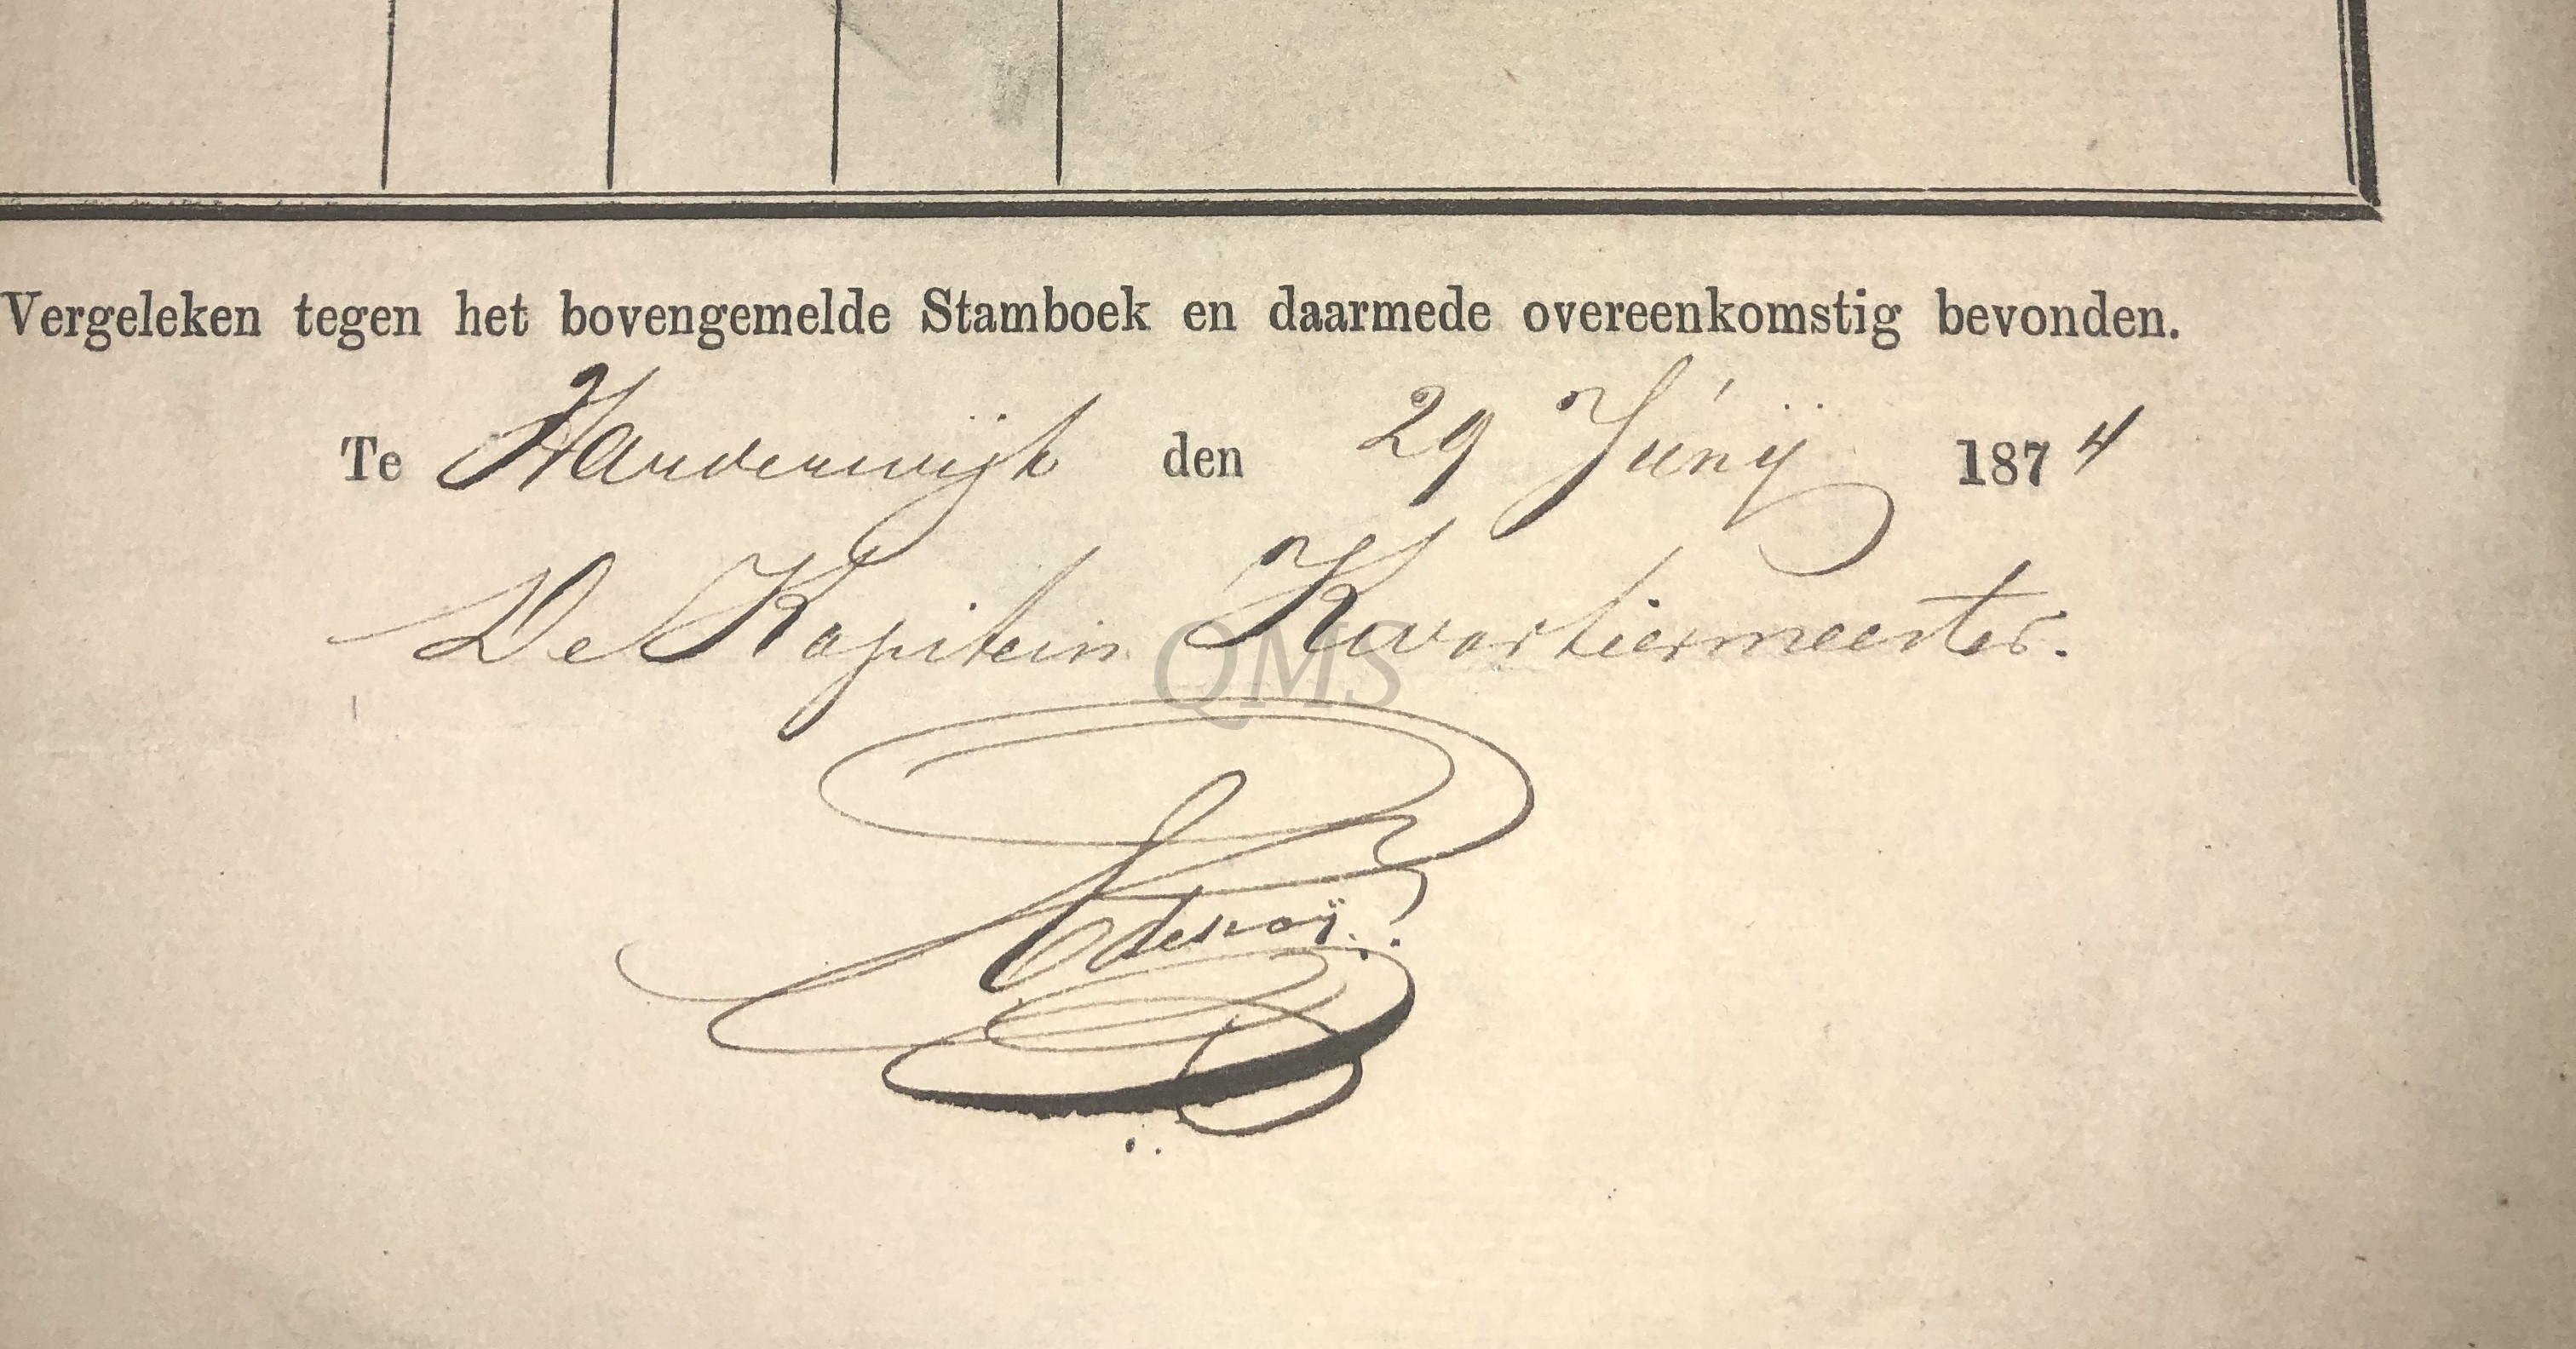 Vergeleken tegen het bovengemelde Stamboek en daarmede overeenkomstig bevonden.
Te Harderwijk den 29 Junij 1874
De Kapitein Kwartiermeester.
QMS